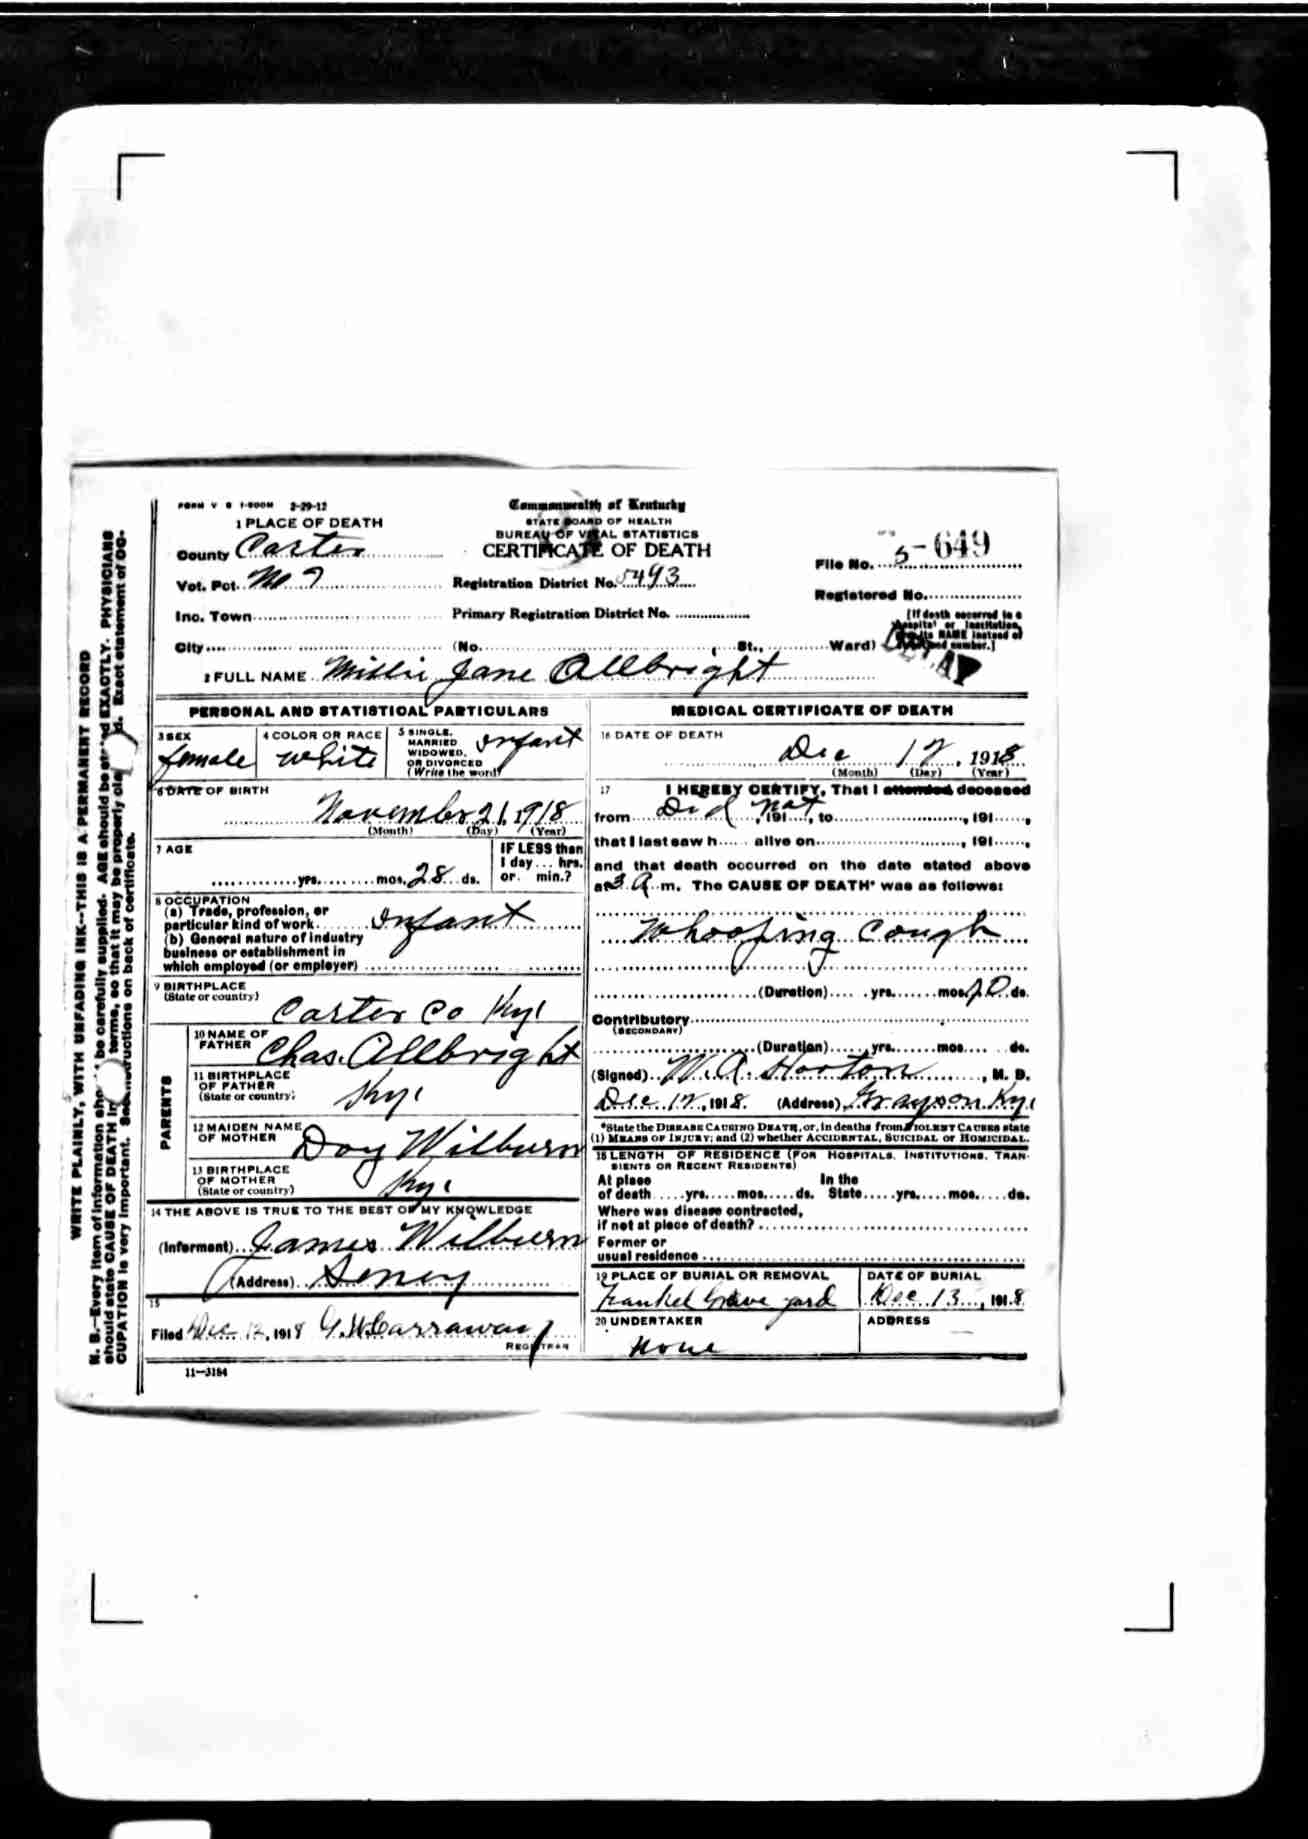 WRITE PLAINLY, WITH UNFADING INK--THIS IS A PERMANENT RECORD
N. B.--Every item of information should be carefully supplied. AGE should be stated EXACTLY. PHYSICIANS
should state CAUSE OF DEATH in terms, so that it may be properly Exact statement of OC-
CUPATION is very important. See instructions on back of certificate.
FORM V S 1-500M 2-29-12
Commonwealth of Kentucky
STATE BOARD OF HEALTH
BUREAU OF VITAL STATISTICS
CERTIFICATE OF DEATH
1 PLACE OF DEATH
County Carter
Vot. Pct. No 7
Registration District No. 5493
File No. 5-649
Registered No.
Inc. Town
Primary Registration District No.
[If death occurred in a
hospital or institution,
give its NAME instead of
street and number.]
City (No. , St., Ward)
2 FULL NAME Millie Jane Allbright
PERSONAL AND STATISTICAL PARTICULARS
3 SEX
female
4 COLOR OR RACE
white
5 SINGLE,
MARRIED
WIDOWED,
OR DIVORCED
(Write the word)
infant
6 DATE OF BIRTH
November 21, 1918
(Month) (Day) (Year)
7 AGE
yrs. mos. 28 ds.
IF LESS than
1 day ... hrs.
or min.?
8 OCCUPATION
(a) Trade, profession, or
particular kind of work infant
(b) General nature of industry
business or establishment in
which employed (or employer)
9 BIRTHPLACE
(State or country)
Carter Co Ky.
PARENTS
10 NAME OF
FATHER Chas. Allbright
11 BIRTHPLACE
OF FATHER
(State or country)
Ky.
12 MAIDEN NAME
OF MOTHER Doy Wilburn
13 BIRTHPLACE
OF MOTHER
(State or country)
Ky.
14 THE ABOVE IS TRUE TO THE BEST OF MY KNOWLEDGE
(Informant) James Wilburn
(Address) Seney
15
Filed Dec 12, 1918 G.W. Carraway
REGISTRAR
11-3184
MEDICAL CERTIFICATE OF DEATH
16 DATE OF DEATH
Dec 12, 1918
(Month) (Day) (Year)
17 I HEREBY CERTIFY, That I attended deceased
from Did not, 191 , to , 191 ,
that I last saw h alive on , 191 ,
and that death occurred on the date stated above
at 3 A m. The CAUSE OF DEATH* was as follows:
Whooping Cough
(Duration) yrs. mos. 20 ds.
Contributory
(SECONDARY)
(Duration) yrs. mos. ds.
(Signed) W. A. Horton, M. D.
Dec 12, 1918. (Address) Grayson Ky.
*State the DISEASE CAUSING DEATH, or, in deaths from VIOLENT CAUSES state
(1) MEANS OF INJURY; and (2) whether ACCIDENTAL, SUICIDAL or HOMICIDAL.
18 LENGTH OF RESIDENCE (FOR HOSPITALS, INSTITUTIONS, TRAN-
SIENTS OR RECENT RESIDENTS)
At place In the
of death yrs. mos. ds. State yrs. mos. ds.
Where was disease contracted,
if not at place of death?
Former or
usual residence
19 PLACE OF BURIAL OR REMOVAL
Grave yard
DATE OF BURIAL
Dec 13, 1918
20 UNDERTAKER
None
ADDRESS